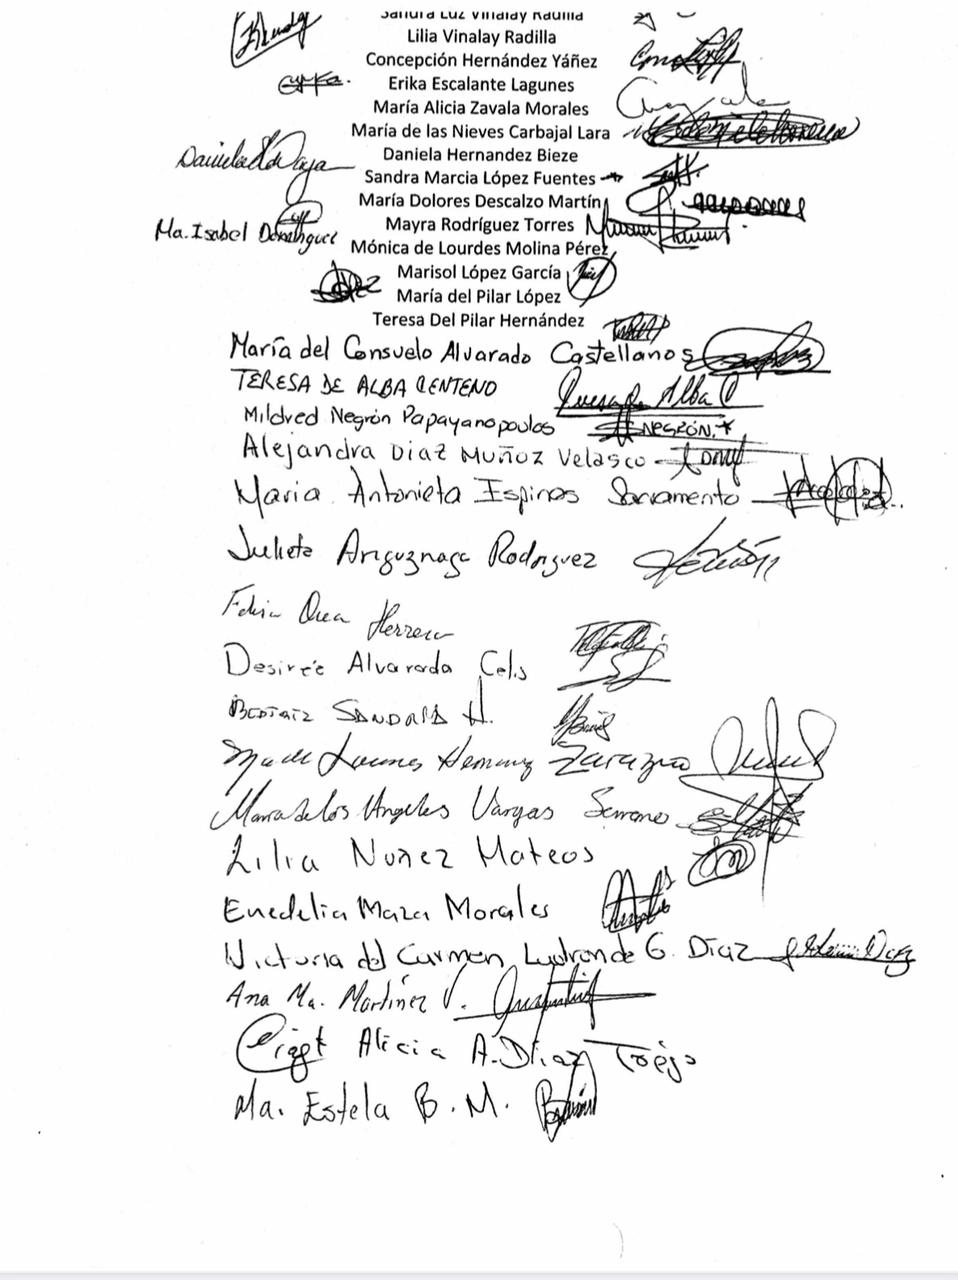 Sandra Luz Vinalay Radilla
Lilia Vinalay Radilla
Concepción Hernández Yáñez
Erika Escalante Lagunes
María Alicia Zavala Morales
María de las Nieves Carbajal Lara
Daniela Hernandez Bieze
Sandra Marcia López Fuentes
María Dolores Descalzo Martín
Ma. Isabel Domínguez Mayra Rodríguez Torres
Mónica de Lourdes Molina Pérez
Marisol López García
María del Pilar López
Teresa Del Pilar Hernández
María del Consuelo Alvarado Castellanos
TERESA DE ALBA CENTENO Teresa de Alba C
Mildred Negrón Papayanopoulos NEGRÓN.
Alejandra Diaz Muñoz Velasco
Maria Antonieta Espinos Sacramento
Julieta Rodriguez
Herrera
Desireé Alvarado Celis
Beatriz SANDOVAL H.
Ma de Lourdes Zarazua
Maria de los Angeles Vargas Serrano
Lilia Nuñez Mateos
Enedelia Maza Morales
Victoria del Carmen G. Diaz
Ana Ma. Martínez V.
Alicia A. Díaz Trejo
Ma. Estela B. M.